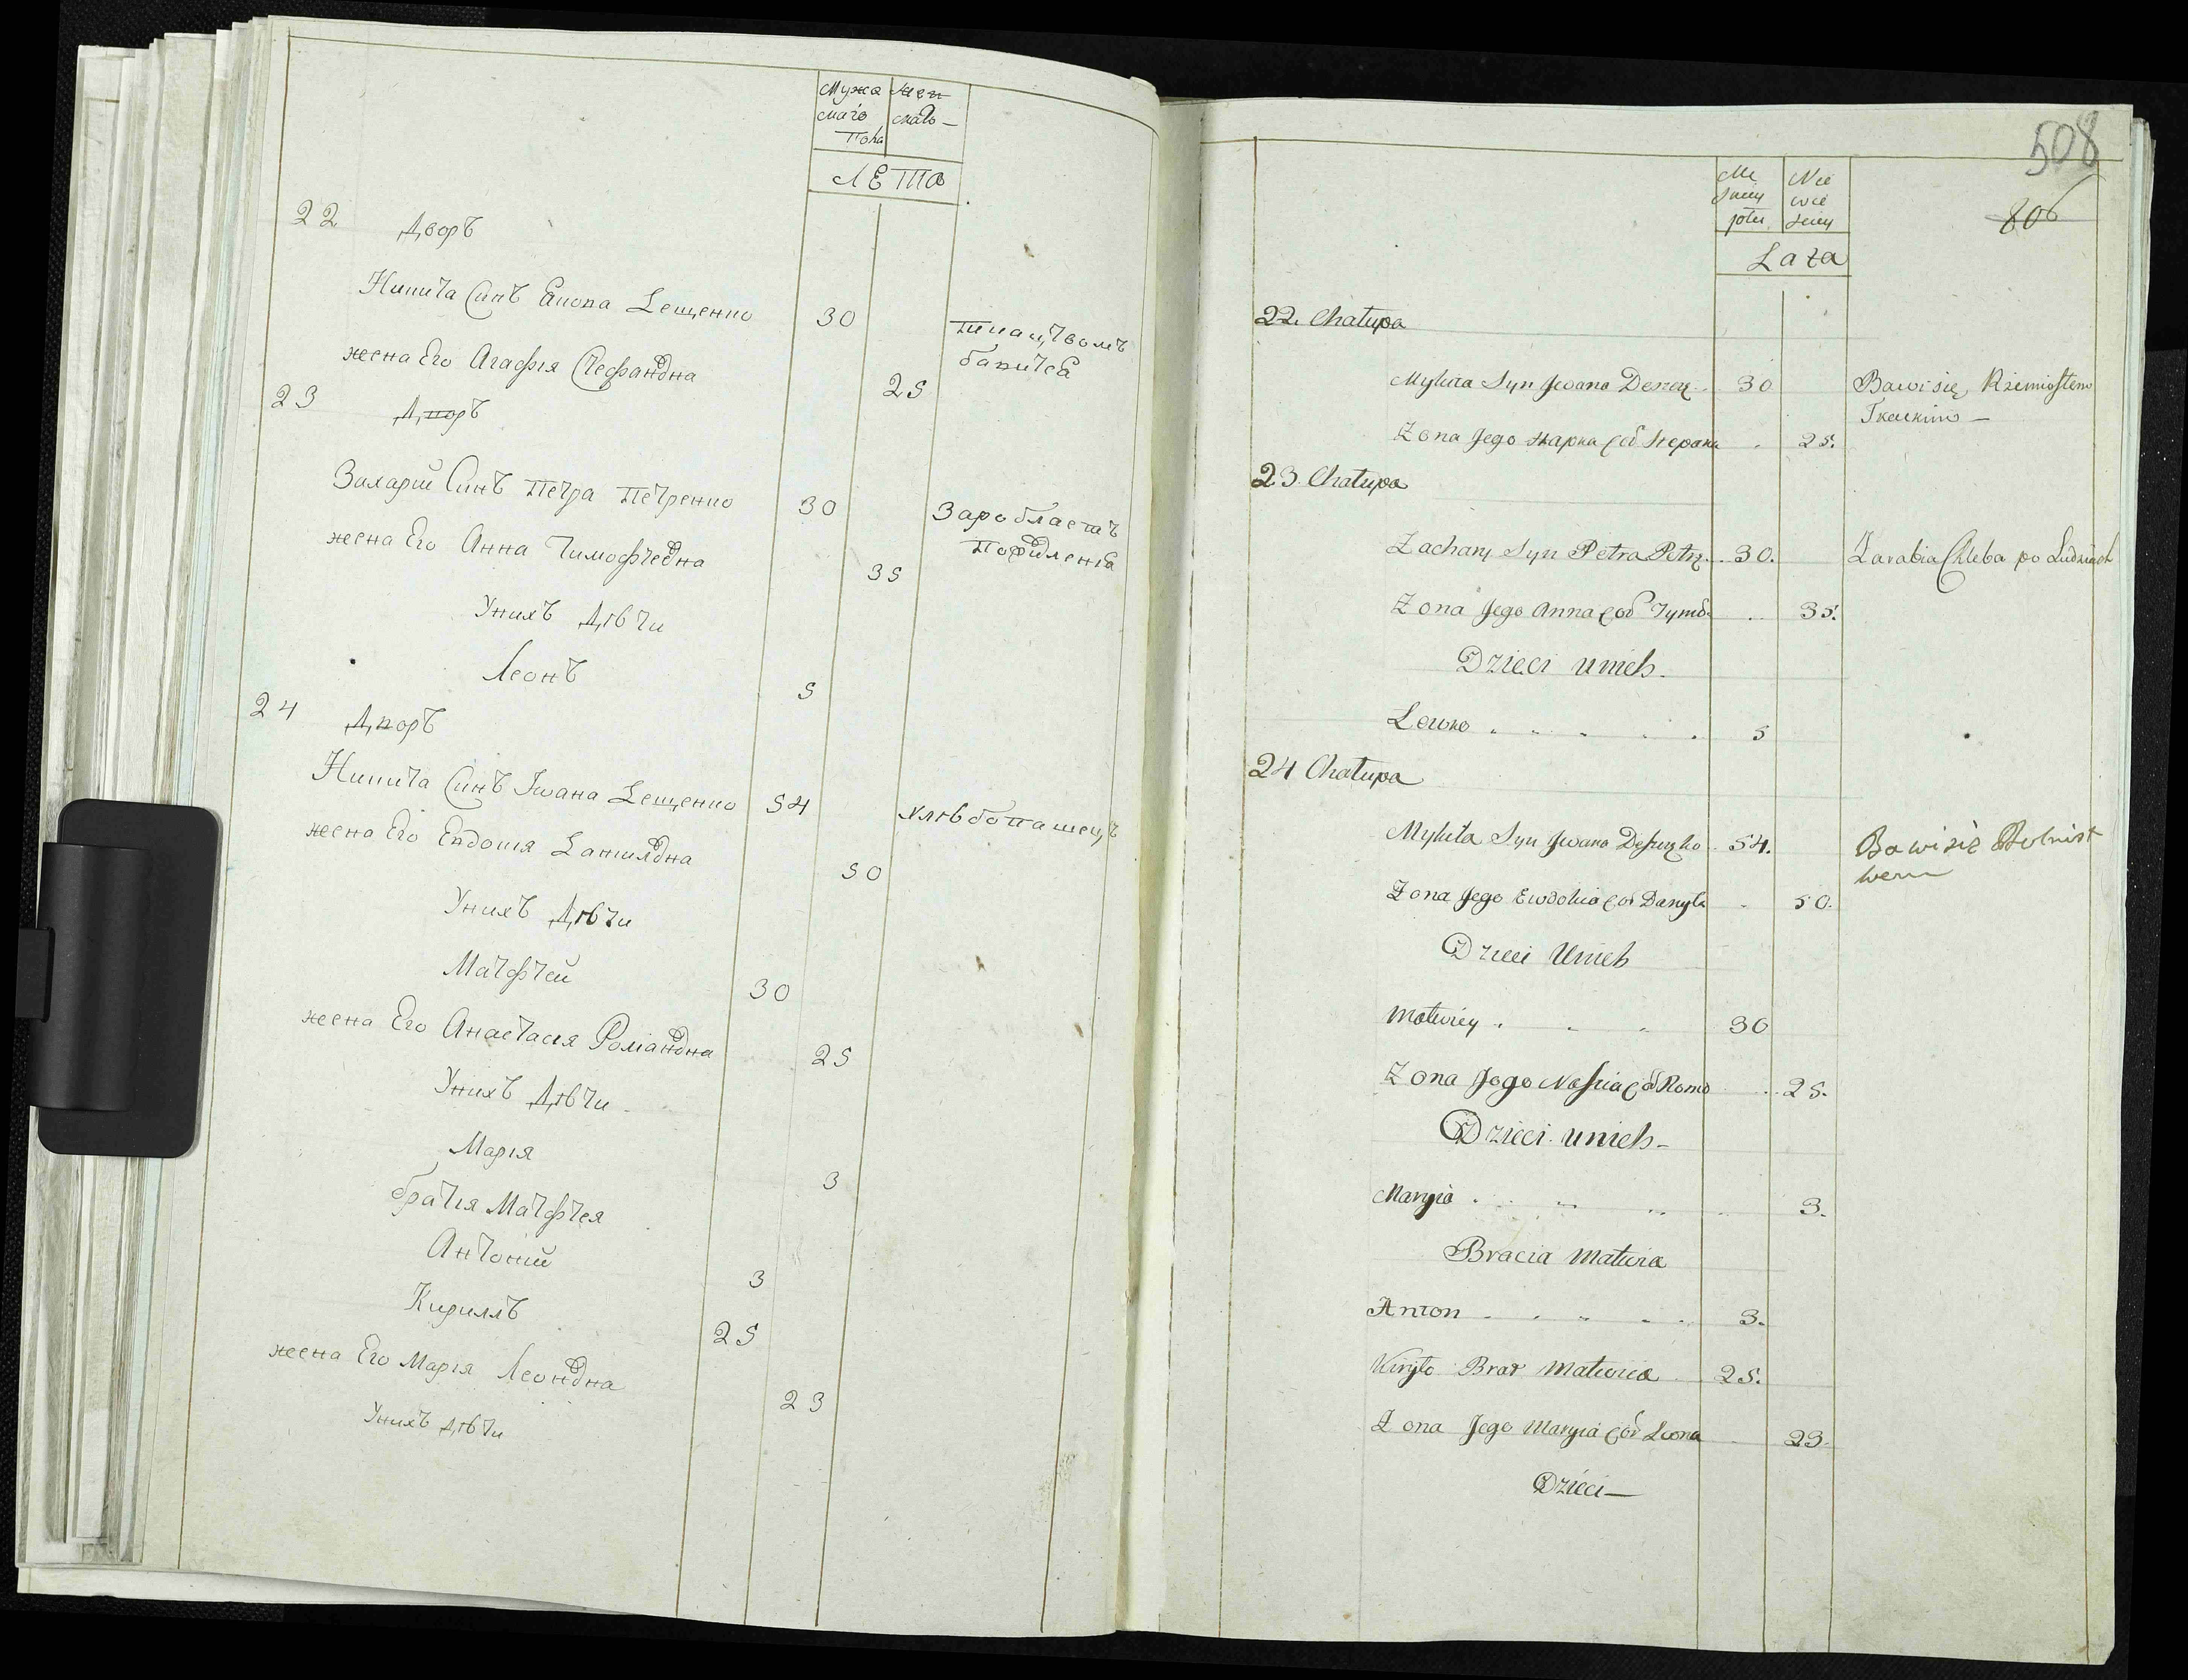 Мужс
скаго
Пола
Жен
скаго
ЛЕТА
22 Дворъ
Никита Синъ Якова Лещенко 30 Ткацтвомъ
бавитса
жена Его Агафія Стефановна 25
23 Дворъ
Захарій Синъ Петра Петренко 30 Заробляетъ
жена Его Анна Тимофѣевна 35
Унихъ Дѣти
Леонъ 5
24 Дворъ
Никита Синъ Ивана Лещенко 54 хлѣбопашецъ
жена Его Евдокія Даниловна 50
Унихъ Дѣти
Матфѣей 30
жена Его Анастасія Романовна 25
Унихъ Дѣти
Марія 3
братія Матфѣея
Антоній 3
Кириллъ 25
жена Его Марія Леоновна 23
Унихъ Дѣти
508
806
Mę
skiey
płci
Nie
wie
sciey
Lata
22. Chałupa
Mykita Syn Jwana Deszcz. 30 Bawi się Rzemiosłem
Tkackim —
Zona Jego Hapka Cór Stepana 25.
23 Chałupa
Zachary Syn Petra Petr. 30. Zarabia Chleba po Ludziach
Zona Jego Anna Cór Tymo. 35.
Dzieci unich.
Lewko 5
24 Chałupa
Mykita Syn Jwana Deszczko 54. Bawi się Rolnist
wem
Zona Jego Ewdokia Cór Danyła 50.
Dzieci Unich
Matwiey 30
Zona Jego Nastia Cór Roma 25.
Dzieci unich —
Maryia 3.
Bracia Matwia
Anton 3.
Kiryło Brat Matwiea 25.
Zona Jego Maryia Cór Leona 23.
Dzieci —